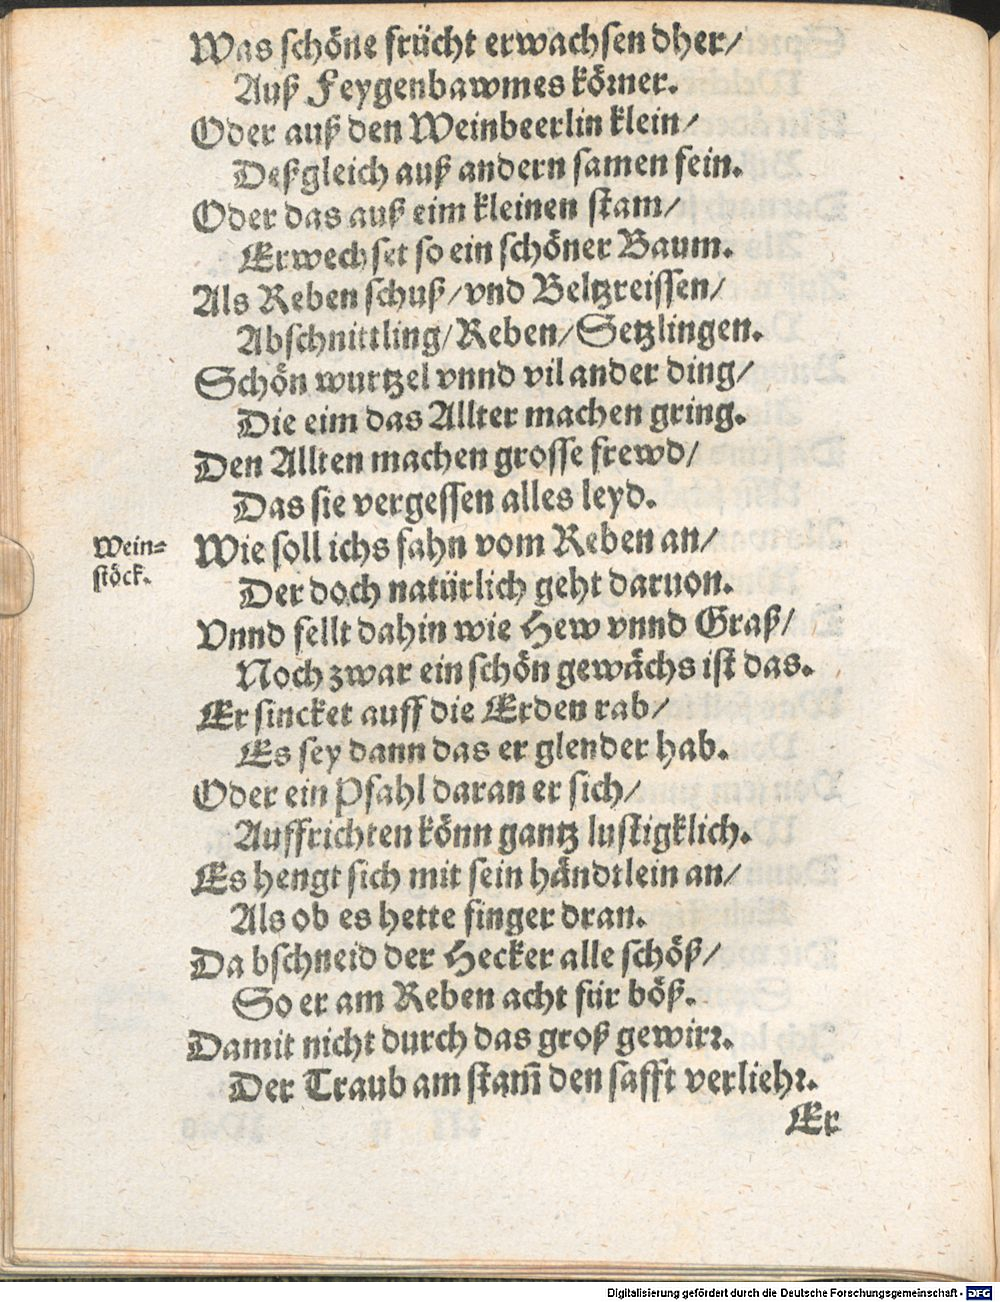 Was schöne frücht erwachsen dher/
Auß Feygenbawmes körner.
Oder auß den Weinbeerlin klein/
Deßgleich auß andern samen fein.
Oder das auß eim kleinen stam/
Erwechset so ein schöner Baum.
Als Reben schuß/vnd Beltzreissen/
Abschnittling/Reben/Setzlingen.
Schön wurtzel vnnd vil ander ding/
Die eim das Allter machen gring.
Den Allten machen grosse frewd/
Das sie vergessen alles leyd.
Wein=
stöck.
Wie soll ichs fahn vom Reben an/
Der doch natürlich geht daruon.
Vnnd fellt dahin wie Hew vnnd Graß/
Noch zwar ein schön gewächs ist das.
Er sincket auff die Erden rab/
Es sey dann das er glender hab.
Oder ein Pfahl daran er sich/
Auffrichten könn gantz lustigklich.
Es hengt sich mit sein händtlein an/
Als ob es hette finger dran.
Da bschneid der Hecker alle schöß/
So er am Reben acht für böß.
Damit nicht durch das groß gewirr.
Der Traub am stam̄ den safft verliehr.
Er
Digitalisierung gefördert durch die Deutsche Forschungsgemeinschaft - DFG